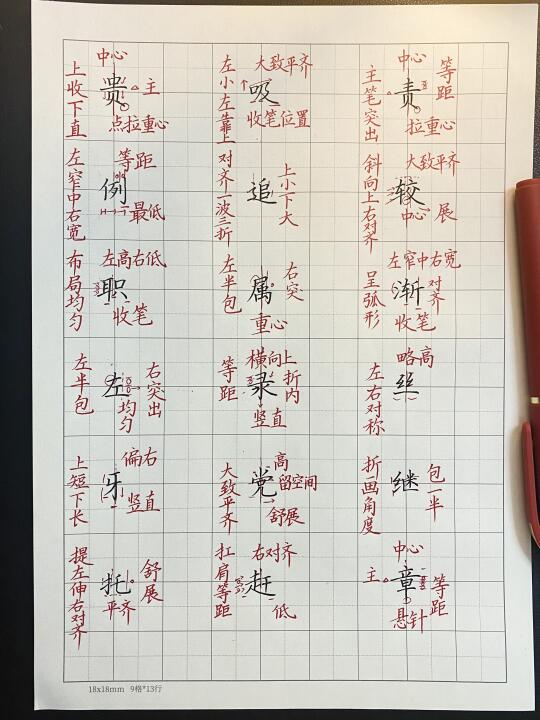 中心
上收下直
贵
主
点拉重心
大致平齐
左小左靠上
吸
收笔位置
中心
主笔突出
责
等距
拉重心
等距
左窄中右宽
例
最低
对齐一波三折
追
上小下大
大致平齐
斜向上右对齐
较
中心
展
左高右低
布局均匀
职
收笔
左半包
属
右突
重心
左窄中右宽
呈弧形
渐
对齐
收笔
左半包
左
右突出
均匀
横向上
等距
录
折内
竖直
略高
左右对称
丝
偏右
上短下长
牙
竖直
高
大致平齐
党
留空间
舒展
折画角度
继
包一半
提左伸右对齐
托
舒展
平齐
右对齐
扛肩等距
赶
低
中心
主
章
等距
悬针
18x18mm 9格*13行